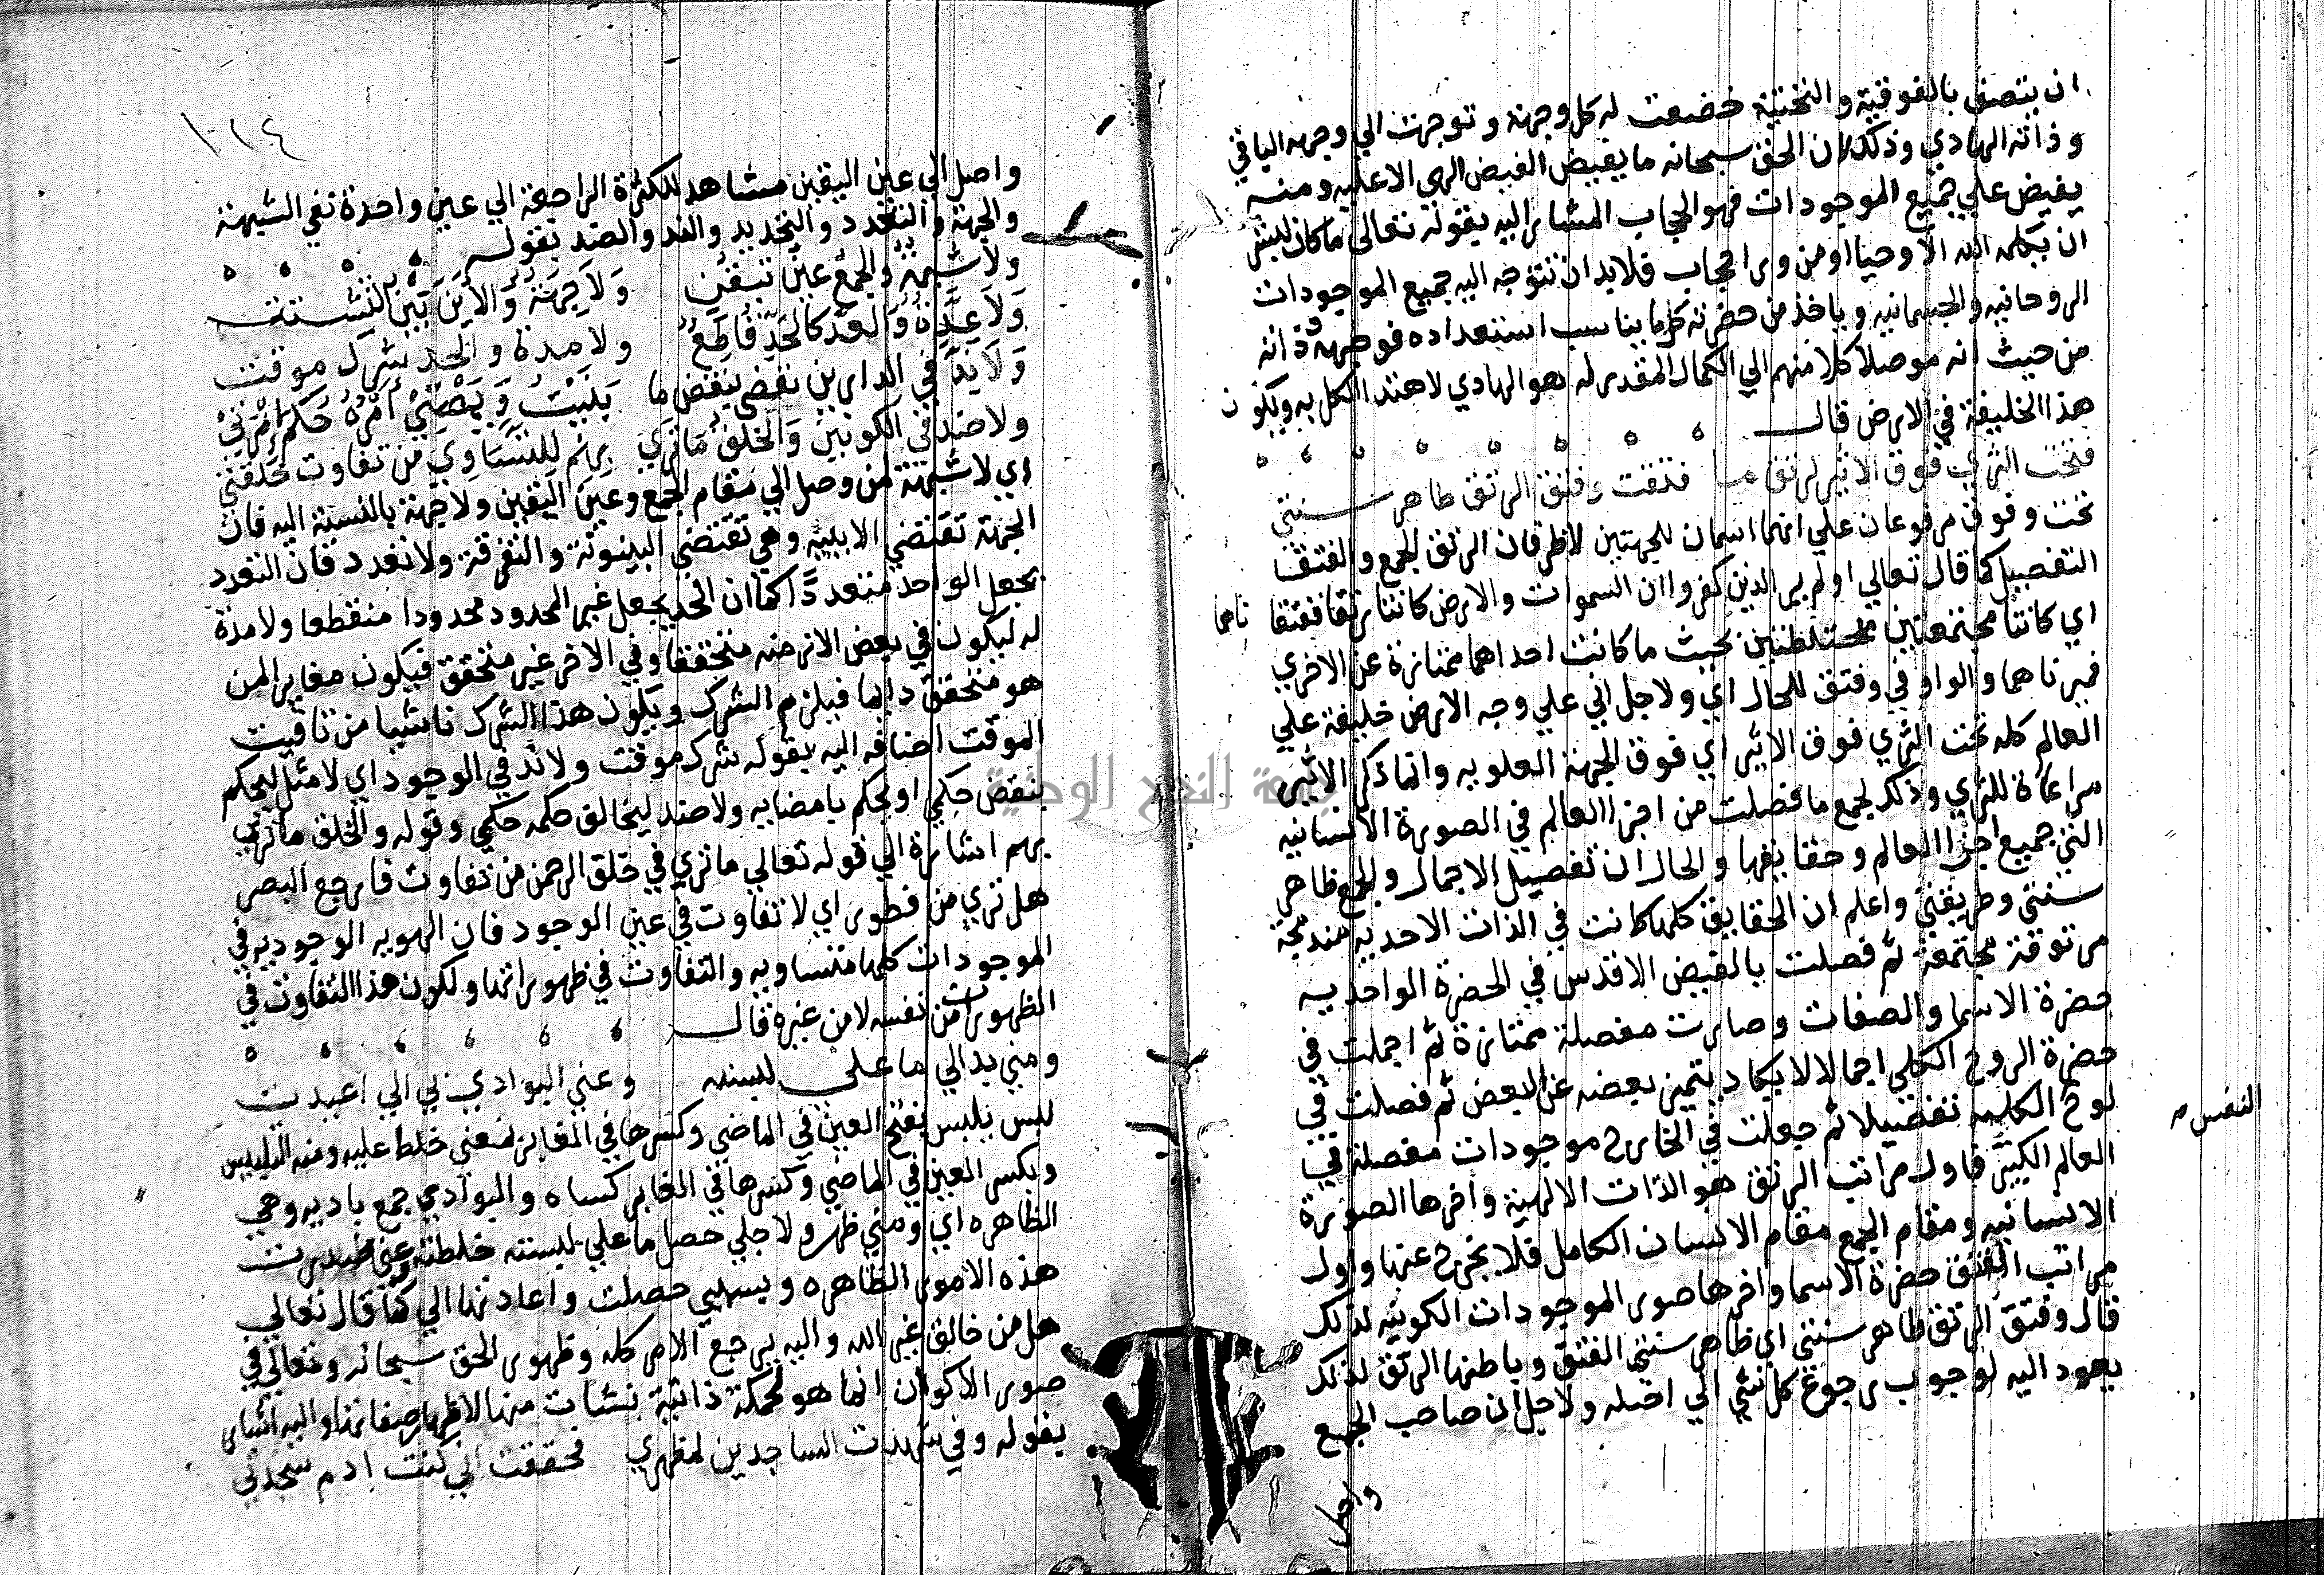 ان يتصف بالفوقية والتحتية خضعت له كل وجهة وتوجهت الي وجهه الباقي
وذاته الهادي وذلك لان الحق سبحانه ما يفيض الفيض الهي الا عليه ومنه
يفيض علي جميع الموجودات فهو الحجاب المشار اليه بقوله تعالى ما كان لبشر
ان يكلمه الله الا وحيا او من ورا حجاب فلا بد ان تتوجه اليه جميع الموجودات
الروحانيه والجسمانيه وياخذ من حضرته كل ما يناسب استعداده فوجهه ذاته
من حيث انه موصلا كلا منهم الي الكمال المقدر له هو الهادي لاهتدا الكل به ويكون
هذا الخليفة في الارض قال
فتحت الثري فوق الاثير لرتق ما فتقت وفتق الرتق ظاهر سنتي
تحت وفوق مرفوعان علي انهما اسمان للجهتين لا ظرفان الرتق الجمع والفتق
التفصيل كما قال تعالي اولم ير الذين كفروا ان السموات والارض كانتا رتقا ففتقنا
ناهما
اي كانتا مجتمعتين مختلطتين بحيث ما كانت احداهما ممتازة عن الاخري
فميزناهما والواو في وفتق للحال اي ولاجل اني علي وجه الارض خليفة علي
العالم كله تحت الثري فوق الاثير اي فوق الجهة العلويه وانما ذكر الاثير
مراعاة للثري وذلك لجمع ما فصلت من اجزا العالم في الصورة الانسانيه
التي جميع اجزا العالم وحقايقها والحال ان تفصيل الاجمال والجمع ظاهر
سنتي وطريقتي واعلم ان الحقايق كلها كانت في الذات الاحديه مندمجة
مرتوقة مجتمعة ثم فصلت بالفيض الاقدس في الحضرة الواحديه
حضرة الاسما والصفات وصارت مفصلة ممتازة ثم اجملت في
حضرة الروح الكلي اجمالا لا يكاد يتميز بعضه عن البعض ثم فصلت في
لوح الكليه تفصيلا ثم جعلت في الخارج موجودات مفصلة في
النفس صح
العالم الكبير فاول مراتب الرتق هو الذات الالهية واخرها الصورة
الانسانيه ومقام الجمع مقام الانسان الكامل فلا يخرج عنها واول
مراتب الفتق حضرة الاسما واخرها صور الموجودات الكونيه لذلك
قال وفتق الرتق ظاهر سنتي اي ظاهر سنتي الفتق وباطنها الرتق لذلك
يعود اليه لوجوب رجوع كل شي الي اصله ولاجل ان صاحب الجمع
واصل
١٠١٤
واصل الي عين اليقين مشاهد للكثرة الراجعة الي عين واحدة نفي الشبهة
والجهة والتعدد والتحديد والند والضد بقوله
ولا شبهة والجمع عين تيقن ولا جهة والاين بين تشتت
ولا عدة والعد كالحد قاطع ولا مدة والحد شرك موقت
ولا ند في الدارين يقضي بنقض ما بنيت ويمضي امره حكم امرتي
ولا ضد في الكونين والخلق ما تري بهم للتساوي من تفاوت خلقتي
اي لا شبهة لمن وصل الي مقام الجمع وعين اليقين ولا جهة بالنسبة اليه فان
الجهة تقتضي الاينيه وهي تقتضي البينونة والتفرقة ولا تعدد فان التعدد
يجعل الواحد متعددًا كما ان الحد يجعل غير المحدود محدودا منقطعا ولا مدة
له ليكون في بعض الازمنه متحققا وفي الاخر غير متحقق فيكون مغاير المن
هو متحقق دايما فيلزم الشرك ويكون هذا الشرك ناشيا من تاقيت
الموقت اضافه اليه بقوله شرك موقت ولا ند في الوجود اي لا مثل ليحكم
بنقض حكمي او يحكم بامضايه ولا ضد ليخالف حكمه حكمي وقوله والخلق ما تري
بهم اشارة الي قوله تعالي ما تري في خلق الرحمن من تفاوت فارجع البصر
هل تري من فطور اي لا تفاوت في عين الوجود فان الهويه الوجوديه في
الموجودات كلها متساويه والتفاوت في ظهوراتها ولكون هذا التفاوت في
الظهورات من نفسه لا من غيره قال
ومني بدا لي ما علي لبسته وعني البوادي بي الي اعيدت
لبس يلبس بفتح العين في الماضي وكسرها في الغابر بمعني خلط عليه ومنه التلبيس
وبكسر العين في الماضي وكسرها في الغابر كساه والبوادي جمع باديه وهي
الظاهره اي ومني ظهر ولاجلي حصل ما علي لبسته خلطته وعني صدرت
هذه الامور الظاهره وبسببي حصلت واعادتها الي كما قال تعالي
هل من خالق غير الله واليه يرجع الامر كله وظهور الحق سبحانه وتعالي في
صور الاكوان انما هو لحكمة ذاتية نشات منها لاظهار صفاتها واليه اشار
بقوله وفي شهدت الساجدين لمظهري فحققت اني كنت ادم سجدتي